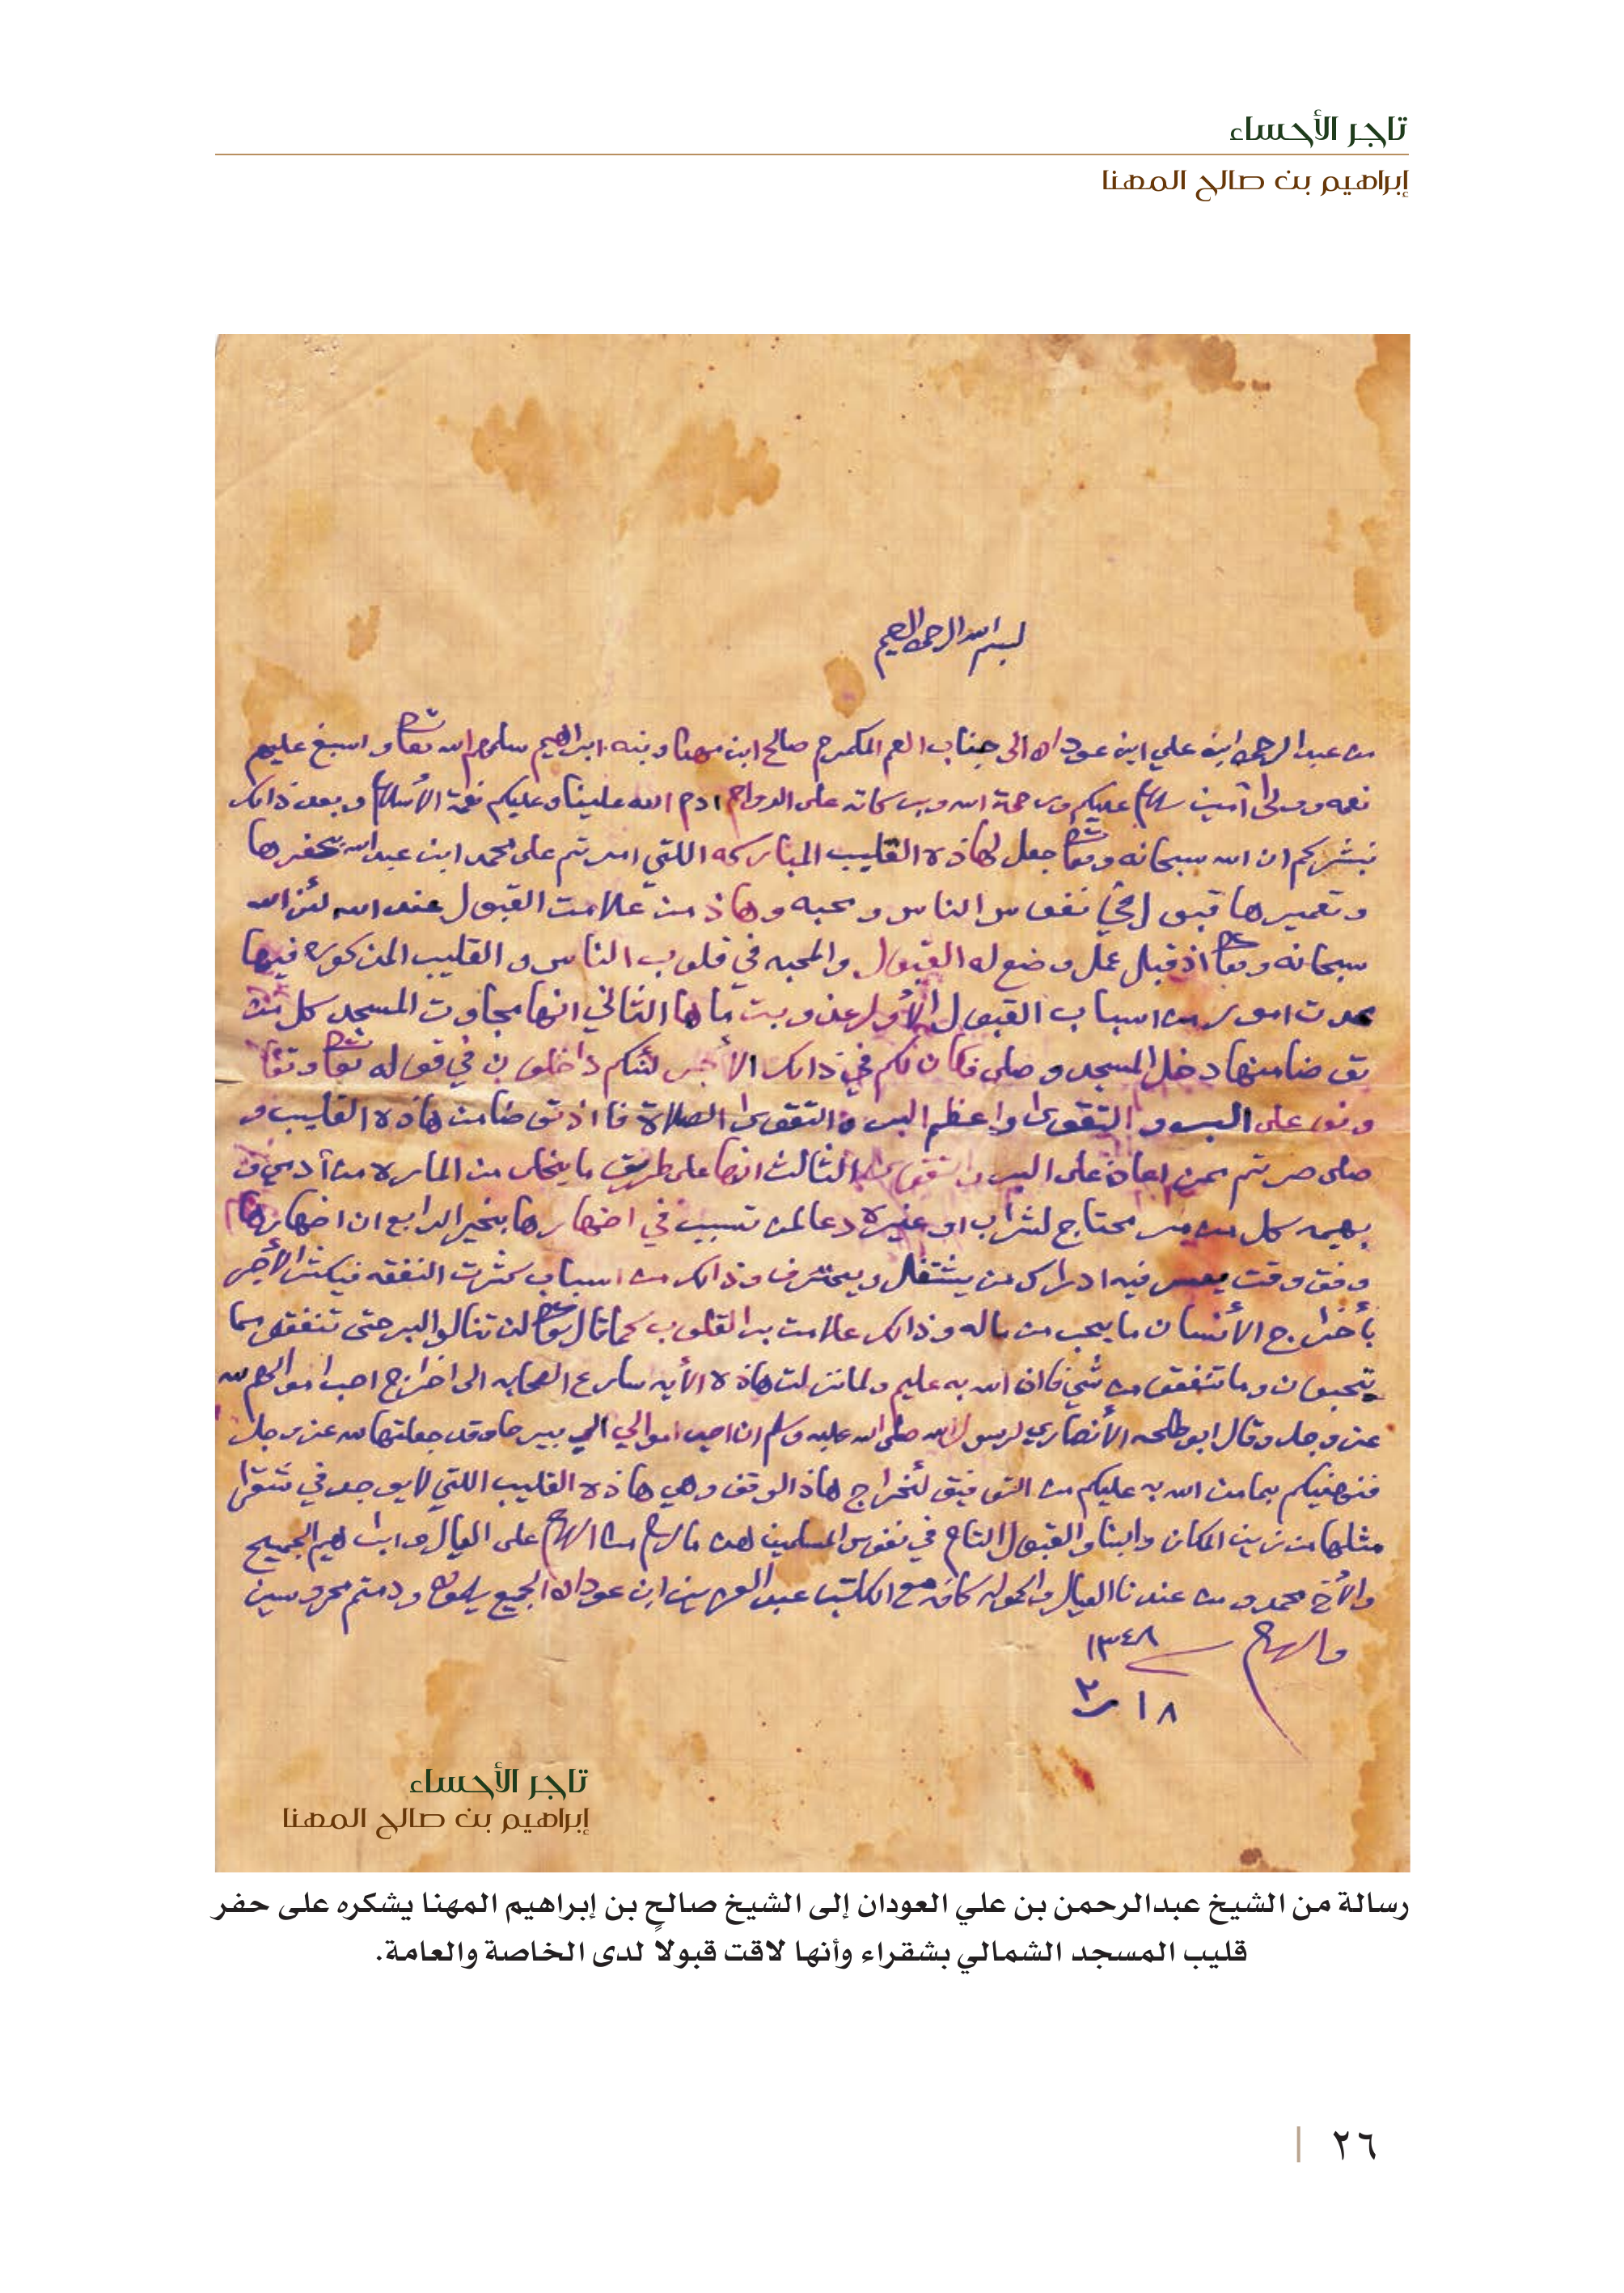 تاجر الأحساء
إبراهيم بن صالح المهنا
بسم الله الرحمن الرحيم
من عبدالرحمن ابن علي ابن عودان الى جناب العم المكرم صالح ابن مهنا وبنه ابراهيم سلمهم الله تعالى واسبغ عليهم
نعمه ووالى آمين سلام عليكم ورحمة الله وبركاته على الدوام ادم الله علينا وعليكم نعمة الأسلام وبعد ذالك
نبشركم ان الله سبحانه وتعالى جعل لهاذه القليب المباركه اللتي امرتم على محمد ابن عبدالله بحفرها
وتعميرها قبول في نفوس الناس ومحبه وهاذ من علامت القبول عند الله لئن الله
سبحانه وتعالى اذ قبل عمل وضع له القبول والمحبه في قلوب الناس والقليب المذكوره فيها
عدت امور من اسباب القبول الأول عذوبت ماها الثاني انها مجاوت المسجد كل من
توضا منها دخل المسجد وصلى فكان لكم في ذالك الأجر لئنكم داخلون في قوله تعالى وتعا
ونو على البر والتقوى واعظم البر والتقوى الصلاة فااذ توضا من هاذه القليب و
صلى صرتم ممن اعان على البر والتقوى الثالث انها على طريق ما يخلى من الماره من أدمي و
بهيمه كل من مر محتاج لشراب او غيره دعا لمن تسبب في اضهارها بخير الرابع ان اضهارها
وفق وقت يعسر فيه ادراك من يشتغل ويحترف وذالك من اسباب كثرت النفقه فيكثر الأجر
بأخراج الأنسان ما يحب من ماله وذالك علامت بر القلوب كما قال تعالى لن تنالو البر حتى تنفقو مما
تحبون وما تنفقو من شي فان الله به عليم ولما نزلت هاذه الأيه سارع الصحابه الى اخراج احب اموالهم لله
عز وجل وقال ابو طلحه الأنصاري لرسول الله صلى الله عليه وسلم ان احب اموالي الي بيرحا وقد جعلتها لله عز وجل
فنهنيكم بما من الله به عليكم من التوفيق لئخراج هاذ الوقف وهي هاذه القليب اللتي لا يوجد في شقرا
مثلها من زين المكان والبنا والقبول التام في نفوس المسلمين هذ ما لزم من السلام على العيال وابراهيم الجميح
والأخ محمد ومن عندنا العيال والحموله كافه مع الكاتب عبدالعزيز ابن عودان الجميع يسلمون ودمتم محروسين
والسلام
١٣٤٨
١٨ ر٢
تاجر الأحساء
إبراهيم بن صالح المهنا
رسالة من الشيخ عبدالرحمن بن علي العودان إلى الشيخ صالح بن إبراهيم المهنا يشكره على حفر
قليب المسجد الشمالي بشقراء وأنها لاقت قبولا لدى الخاصة والعامة.
٢٦